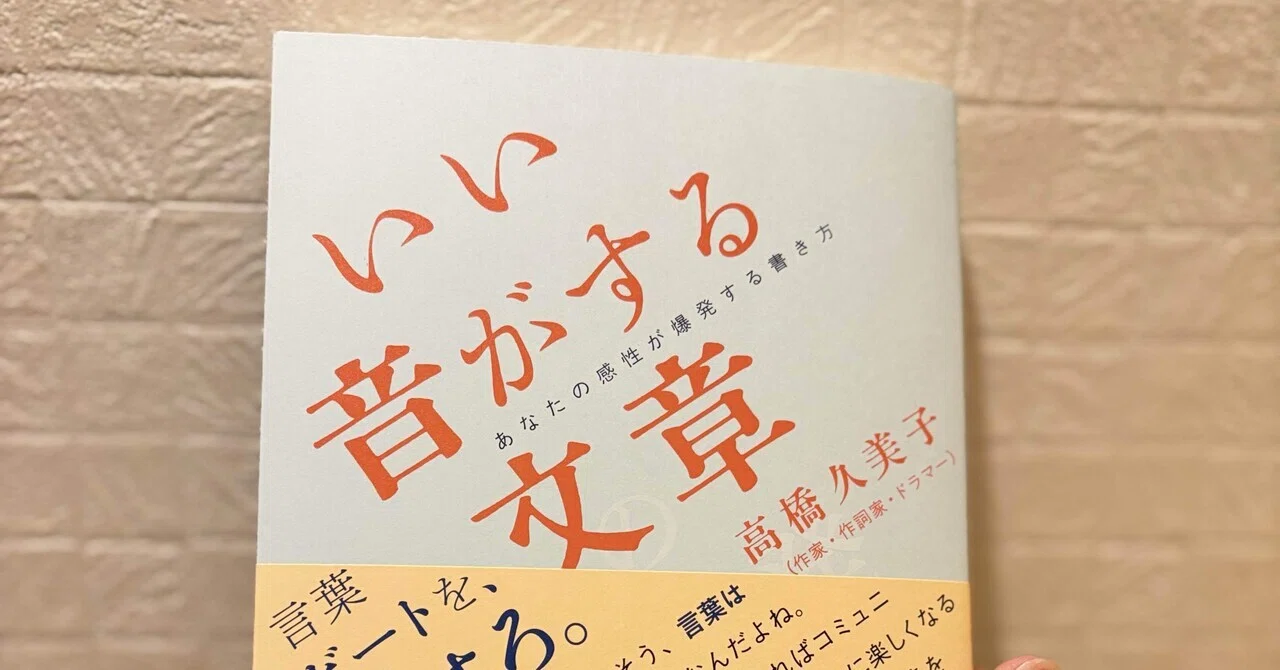 いい
音がする
文章
あなたの感性が爆発する書き方
高橋久美子
(作家・作詞家・ドラマー)
言葉
ートを、
ろ。
そう、言葉は
なんだよね。
ればコミュニ
に楽しくなる
を